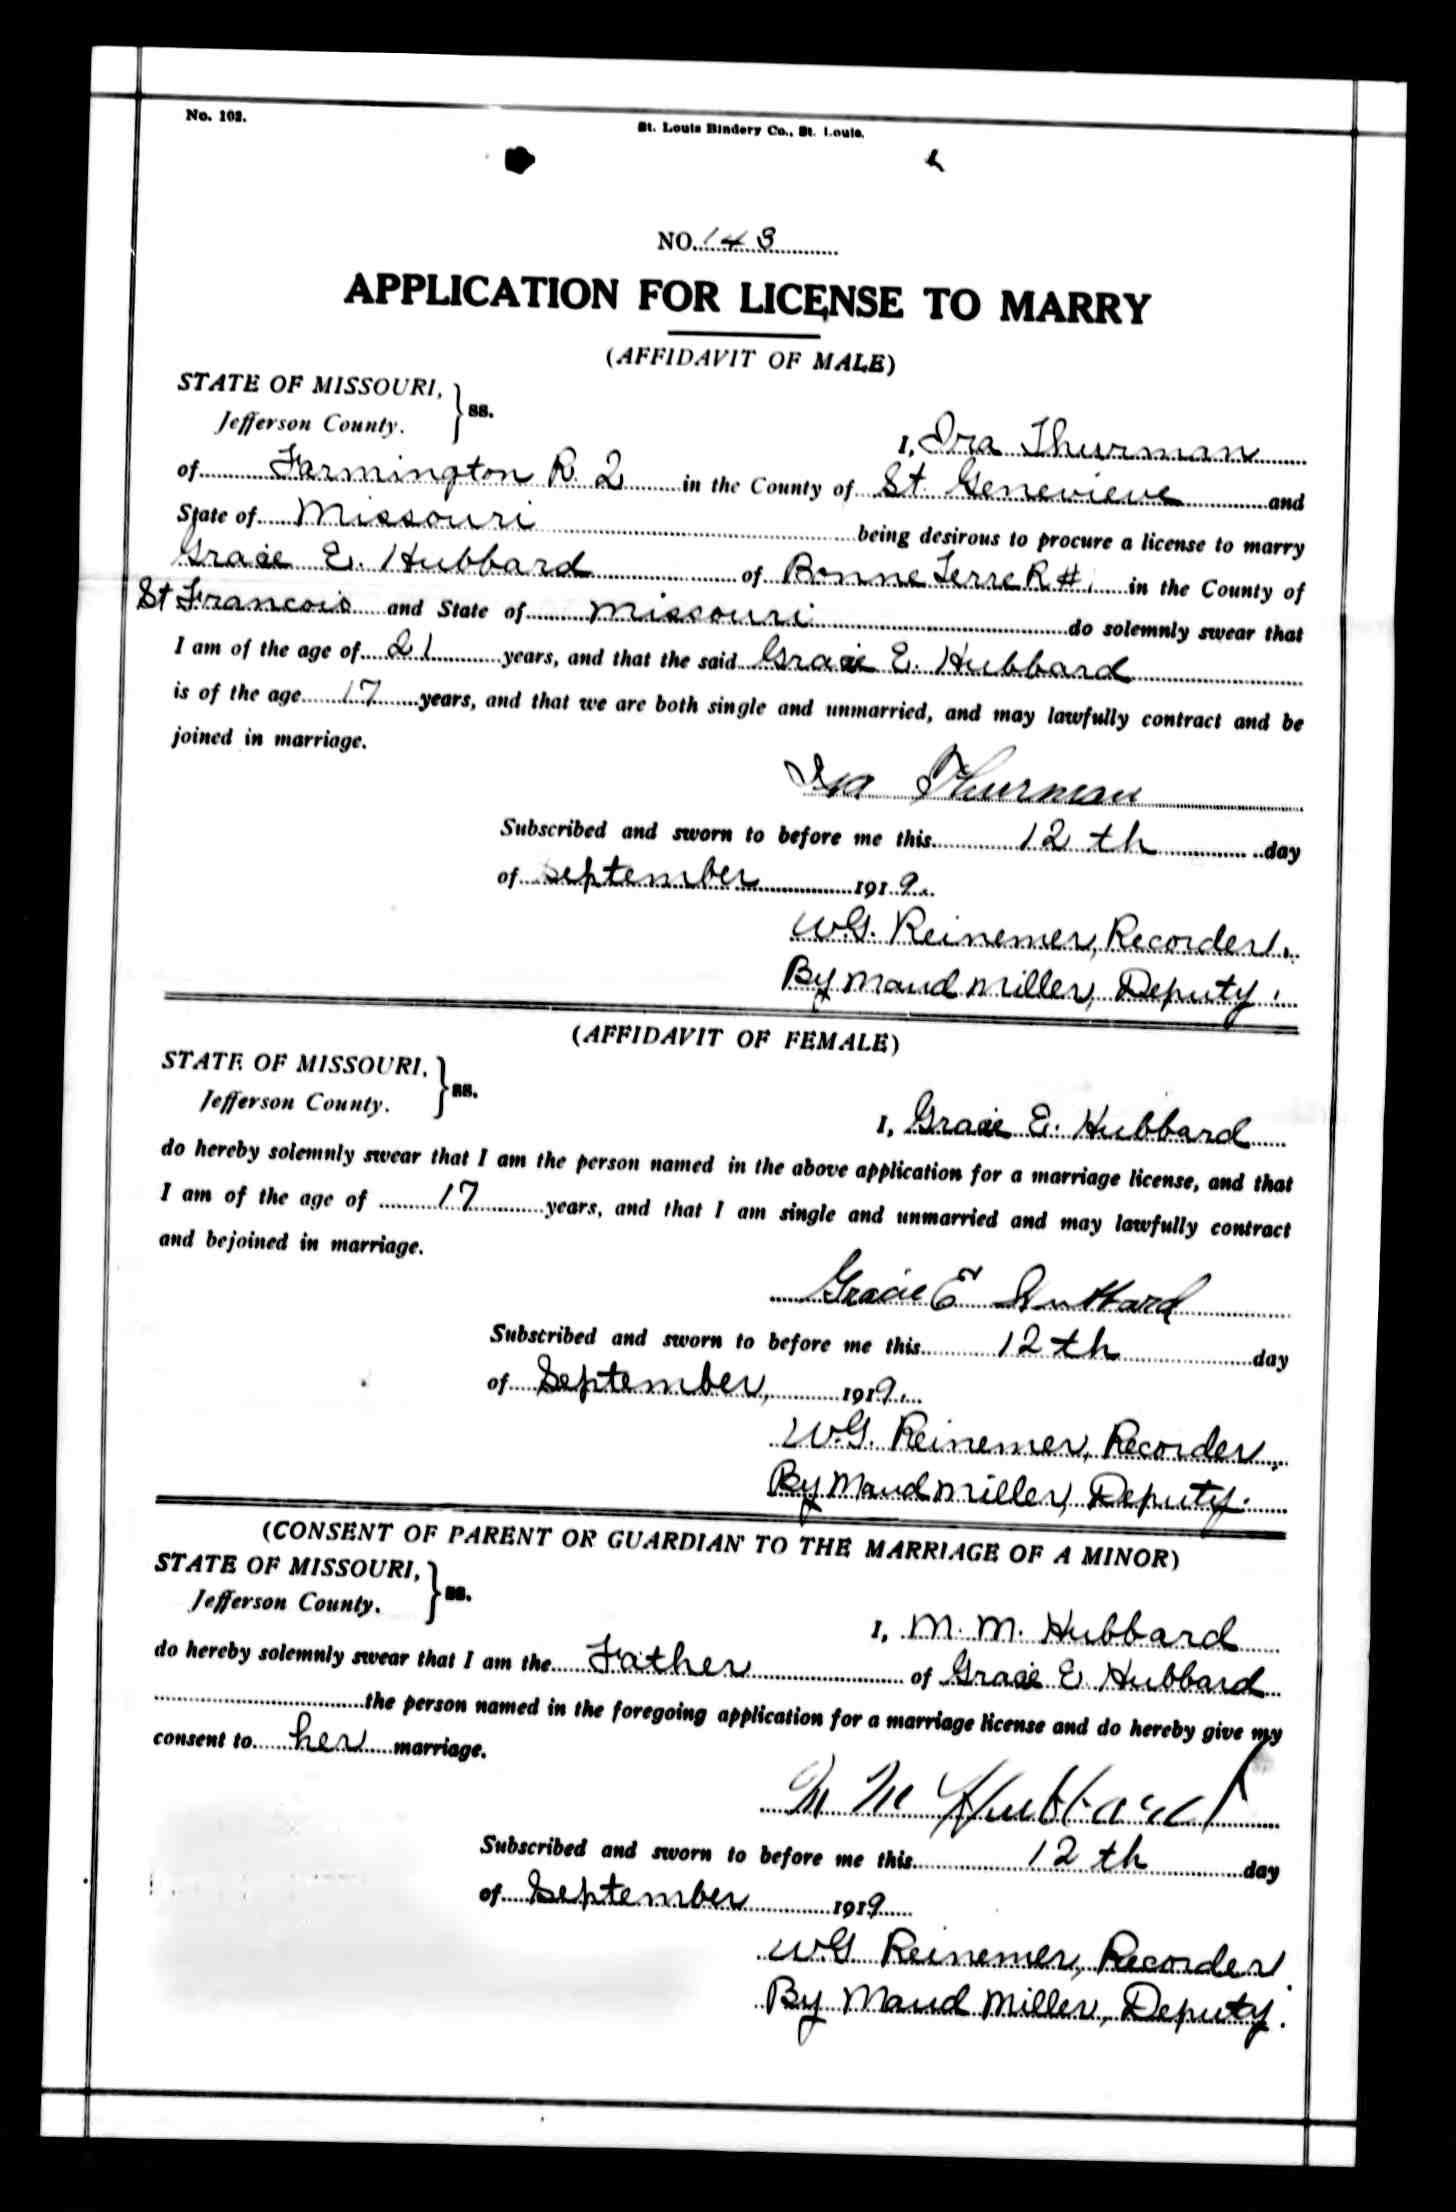 No. 102.
St. Louis Bindery Co., St. Louis.
NO. 143
APPLICATION FOR LICENSE TO MARRY
(AFFIDAVIT OF MALE)
STATE OF MISSOURI,
Jefferson County. } ss.
I, Ira Thurman
of Farmington R. 2 in the County of St. Genevieve and
State of Missouri being desirous to procure a license to marry
Gracie E. Hubbard of Bonne Terre R #1 in the County of
St Francois and State of Missouri do solemnly swear that
I am of the age of 21 years, and that the said Gracie E. Hubbard
is of the age 17 years, and that we are both single and unmarried, and may lawfully contract and be
joined in marriage.
Ira Thurman
Subscribed and sworn to before me this 12th day
of September 1919.
W.G. Reinemer, Recorder.
By Maud Miller, Deputy.
(AFFIDAVIT OF FEMALE)
STATE OF MISSOURI,
Jefferson County. } ss.
I, Gracie E. Hubbard
do hereby solemnly swear that I am the person named in the above application for a marriage license, and that
I am of the age of 17 years, and that I am single and unmarried and may lawfully contract
and bejoined in marriage.
Gracie E Hubbard
Subscribed and sworn to before me this 12th day
of September, 1919.
W.G. Reinemer, Recorder.
By Maud Miller, Deputy.
(CONSENT OF PARENT OR GUARDIAN TO THE MARRIAGE OF A MINOR)
STATE OF MISSOURI,
Jefferson County. } ss.
I, M. M. Hubbard
do hereby solemnly swear that I am the Father of Gracie E Hubbard
the person named in the foregoing application for a marriage license and do hereby give my
consent to her marriage.
M M Hubbard
Subscribed and sworn to before me this 12th day
of September 1919
W.G. Reinemer, Recorder.
By Maud Miller, Deputy.